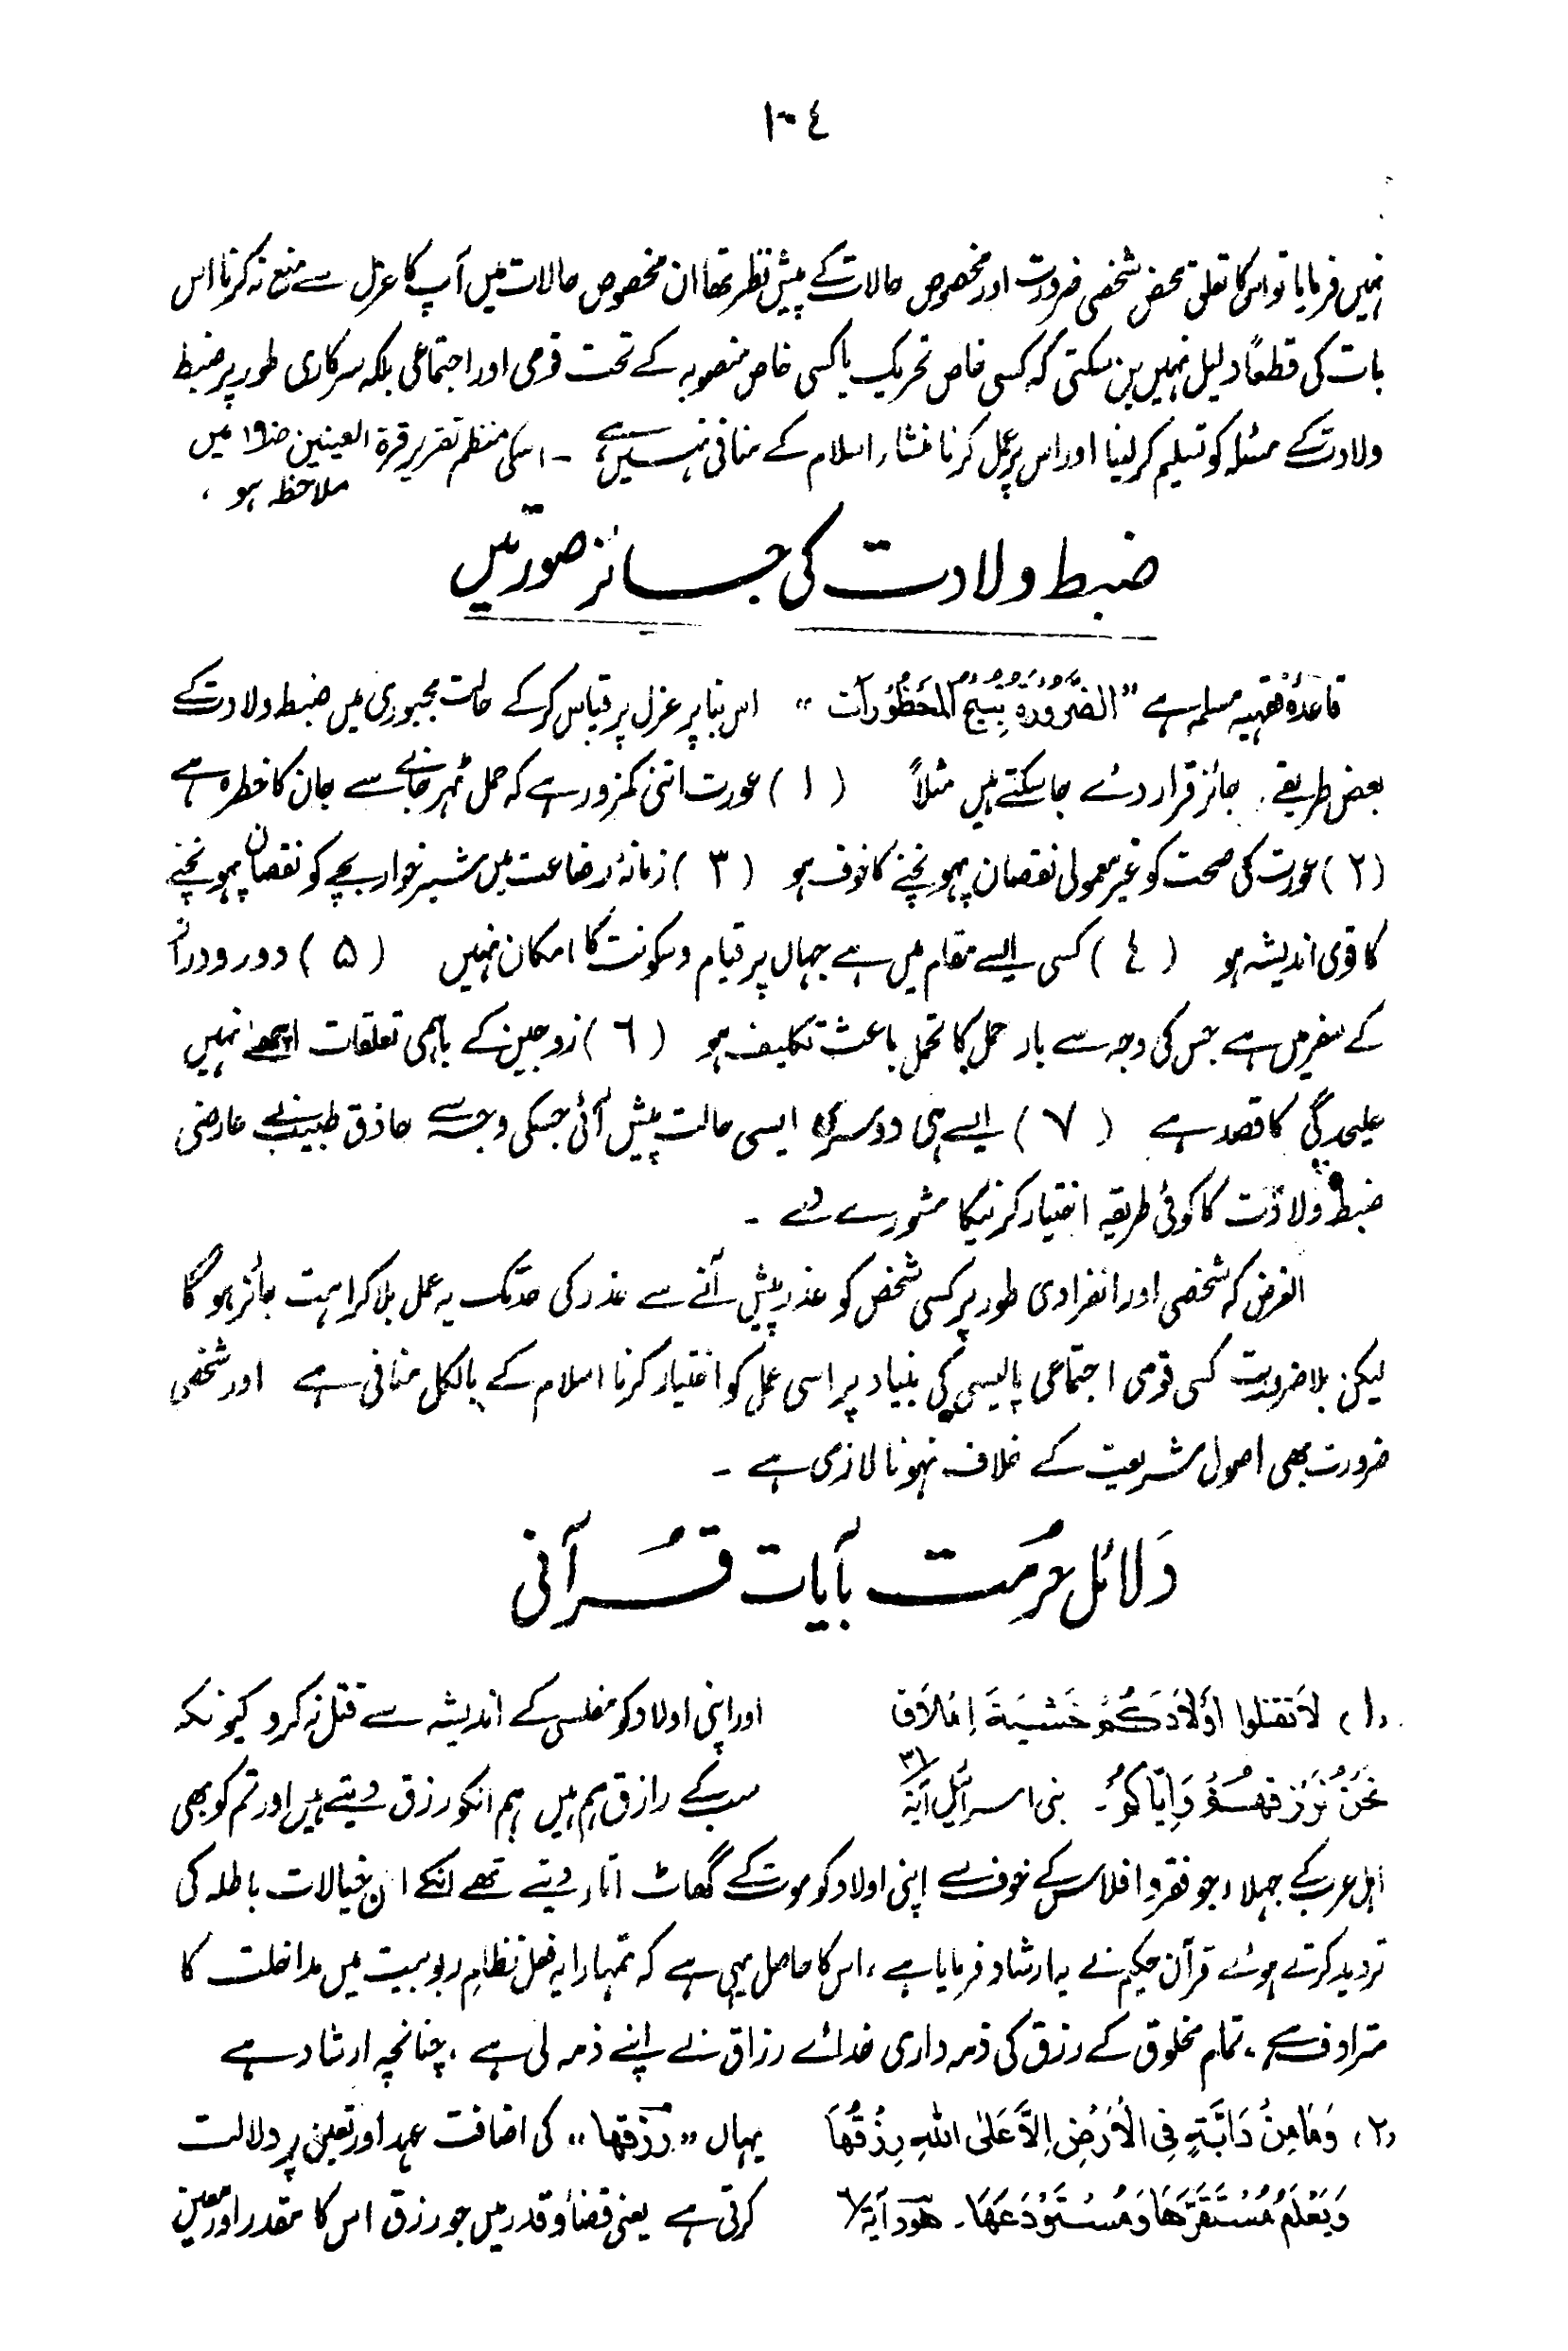 ١٠٤
نہیں فرمایا تو اس کا تعلق محض شخصی ضرورت اور مخصوص حالات کے پیش نظر تھا ان مخصوص حالات میں آپ کا عزل سے منع نہ کرنا اس
بات کی قطعاً دلیل نہیں بن سکتی کہ کسی خاص تحریک یا کسی خاص منصوبہ کے تحت قومی اور اجتماعی بلکہ سرکاری طور پر ضبط
ولادت کے مسئلہ کو تسلیم کرلینا اور اس پر عمل کرنا منشاء اسلام کے منافی نہیں ہے ۔ اسکی منظم تقریر قرة العینین ص۱۹ میں
ملاحظہ ہو ،
ضبط ولادت کی جائز صورتیں
قاعدۂ فقہیہ مسلمہ ہے "الضَّرُورَةُ تُبِيحُ الْمَحْظُورَات" اس بنا پر عزل پر قیاس کرکے حالت مجبوری میں ضبط ولادت کے
بعض طریقے جائز قرار دئے جاسکتے ہیں مثلاً (١) عورت اتنی کمزور ہے کہ حمل ٹہر جانے سے جان کا خطرہ ہے
(٢) عورت کی صحت کو غیر معمولی نقصان پہونچنے کا خوف ہو (٣) زمانۂ رضاعت میں شیر خوار بچے کو نقصان پہونچنے
کا قوی اندیشہ ہو (٤) کسی ایسے مقام میں ہے جہاں پر قیام و سکونت کا امکان نہیں (۵) دور و دراز
کے سفر میں ہے جس کی وجہ سے بار حمل کا تحمل باعث تکلیف ہو (٦) زوجین کے باہمی تعلقات اچھے نہیں
علیحدگی کا قصد ہے (٧) ایسے ہی دوسری ایسی حالت پیش آئی جسکی وجہ سے حاذق طبیب نے عارضی
ضبط ولادت کا کوئی طریقہ اختیار کرنیکا مشورے دے ۔
الغرض کہ شخصی اور انفرادی طور پر کسی شخص کو عذر پیش آنے سے عذر کی حد تک یہ عمل بلا کراہت جائز ہوگا
لیکن بلا ضرورت کسی قومی اجتماعی پالیسی کی بنیاد پر اسی عمل کو اختیار کرنا اسلام کے بالکل منافی ہے اور شخصی
ضرورت بھی اصول شریعت کے خلاف نہونا لازمی ہے ۔
دَلائل حرمت بآیات قرآنی
(١) لَا تَقْتُلُوا أَوْلَادَكُمْ خَشْيَةَ إِمْلَاقٍ اور اپنی اولاد کو مفلسی کے اندیشہ سے قتل نہ کرو کیونکہ
نَحْنُ نَرْزُقُهُمْ وَإِيَّاكُمْ ۔ بنی اسرائیل آیة ٣١ سب کے رازق ہم ہیں ہم انکو رزق دیتے ہیں اور تم کو بھی
اہل عرب کے جہلاء جو فقر و افلاس کے خوف سے اپنی اولاد کو موت کے گھاٹ اتار دیتے تھے انکے ان خیالات باطلہ کی
تردید کرتے ہوئے قرآن حکیم نے یہ ارشاد فرمایا ہے ، اس کا حاصل یہی ہے کہ تمہارا یہ فعل نظامِ ربوبیت میں مداخلت کا
مترادف ہے ، تمام مخلوق کے رزق کی ذمہ داری خدائے رزاق نے اپنے ذمہ لی ہے ، چنانچہ ارشاد ہے
(٢) وَمَا مِنْ دَابَّةٍ فِي الْاَرْضِ اِلَّا عَلَى اللّٰهِ رِزْقُهَا یہاں "رزقها" کی اضافت عہد اور تعین پر دلالت
وَيَعْلَمُ مُسْتَقَرَّهَا وَمُسْتَوْدَعَهَا ۔ هود آية ٦ کرتی ہے یعنی قضاؤ قدر میں جو رزق اس کا مقدر اور معین